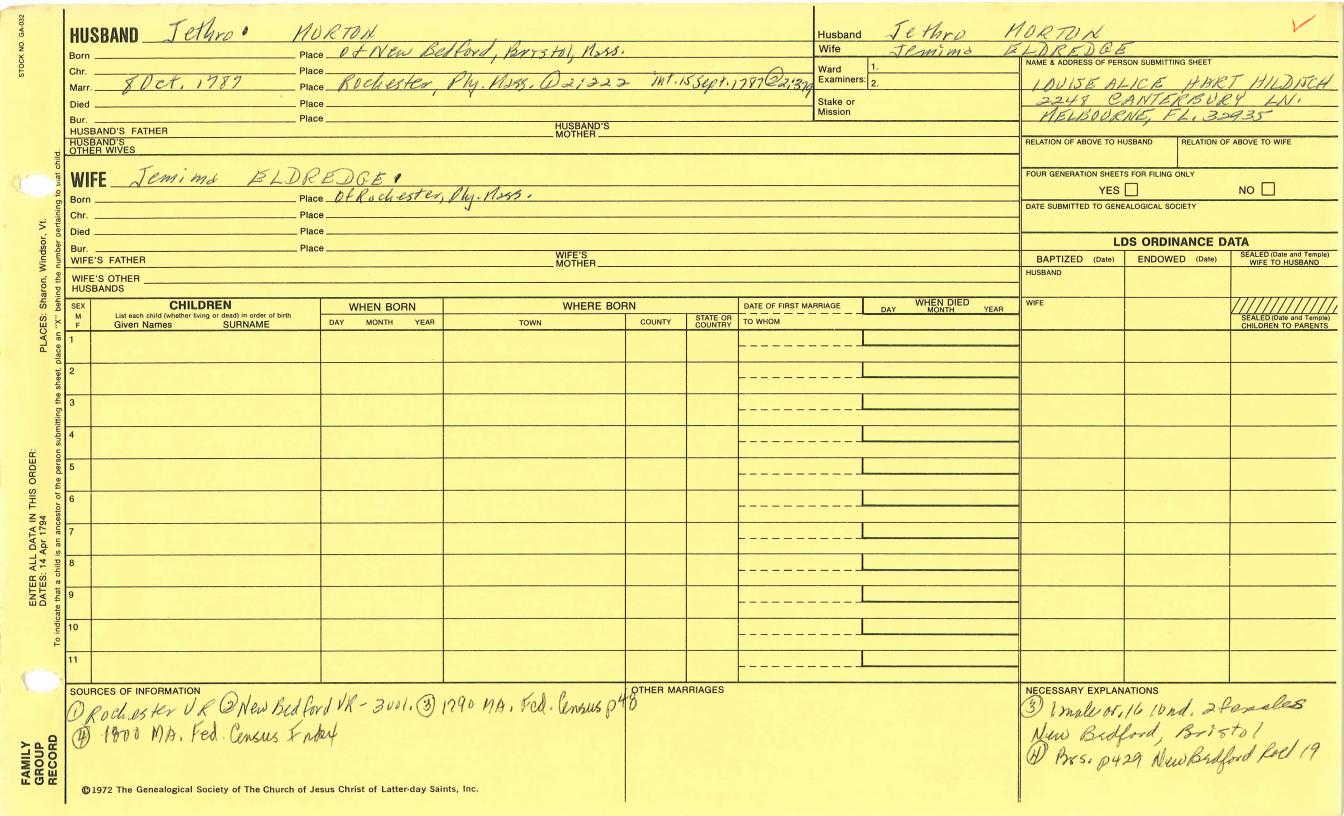 STOCK NO. GA-032
HUSBAND Jethro MORTON
Born Place of New Bedford, Bristol, Mass.
Chr. Place
Marr. 8 Oct. 1787 Place Rochester, Ply. Mass. ①2:222 int. 15 Sept. 1787 ②2:379
Died Place
Bur. Place
HUSBAND'S FATHER HUSBAND'S MOTHER
HUSBAND'S OTHER WIVES
WIFE Jemima ELDREDGE
Born Place of Rochester, Ply. Mass.
Chr. Place
Died Place
Bur. Place
WIFE'S FATHER WIFE'S MOTHER
WIFE'S OTHER HUSBANDS
Husband Jethro MORTON
Wife Jemima ELDREDGE
Ward Examiners: 1.
2.
Stake or Mission
NAME & ADDRESS OF PERSON SUBMITTING SHEET
LOUISE ALICE HART HILDICH
2248 CANTERBURY LN.
MELBOURNE, FL. 32935
RELATION OF ABOVE TO HUSBAND RELATION OF ABOVE TO WIFE
FOUR GENERATION SHEETS FOR FILING ONLY
YES NO
DATE SUBMITTED TO GENEALOGICAL SOCIETY
LDS ORDINANCE DATA
BAPTIZED (Date) ENDOWED (Date) SEALED (Date and Temple) WIFE TO HUSBAND
HUSBAND
WIFE
SEALED (Date and Temple) CHILDREN TO PARENTS
SEX M F
CHILDREN
List each child (whether living or dead) in order of birth
Given Names SURNAME
WHEN BORN
DAY MONTH YEAR
WHERE BORN
TOWN COUNTY STATE OR COUNTRY
DATE OF FIRST MARRIAGE
TO WHOM
WHEN DIED
DAY MONTH YEAR
1
2
3
4
5
6
7
8
9
10
11
SOURCES OF INFORMATION
① Rochester VR ② New Bedford VR - 3 vol. ③ 1790 MA. Fed. Census p48
④ 1800 MA. Fed. Census Index
OTHER MARRIAGES
NECESSARY EXPLANATIONS
③ 1 male ov. 16 1 und. 2 females
New Bedford, Bristol
④ Brs. p429 New Bedford Roll 19
©1972 The Genealogical Society of The Church of Jesus Christ of Latter-day Saints, Inc.
FAMILY GROUP RECORD
ENTER ALL DATA IN THIS ORDER:
DATES: 14 Apr 1794
PLACES: Sharon, Windsor, Vt.
To indicate that a child is an ancestor of the person submitting the sheet, place an "X" behind the number pertaining to that child.